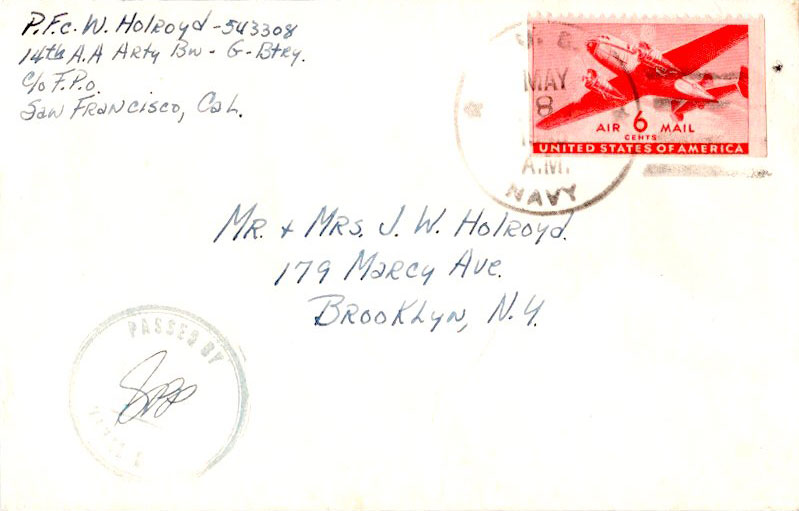 P.F.c. W. Holroyd - 543308
14th A.A Arty Bn - G - Btry.
c/o F.P.o.
San Francisco, Cal.
U. S.
MAY
8
A.M.
NAVY
AIR 6 MAIL
CENTS
UNITED STATES OF AMERICA
Mr. + Mrs. J. W. Holroyd.
179 Marcy Ave.
Brooklyn, N.Y.
PASSED BY